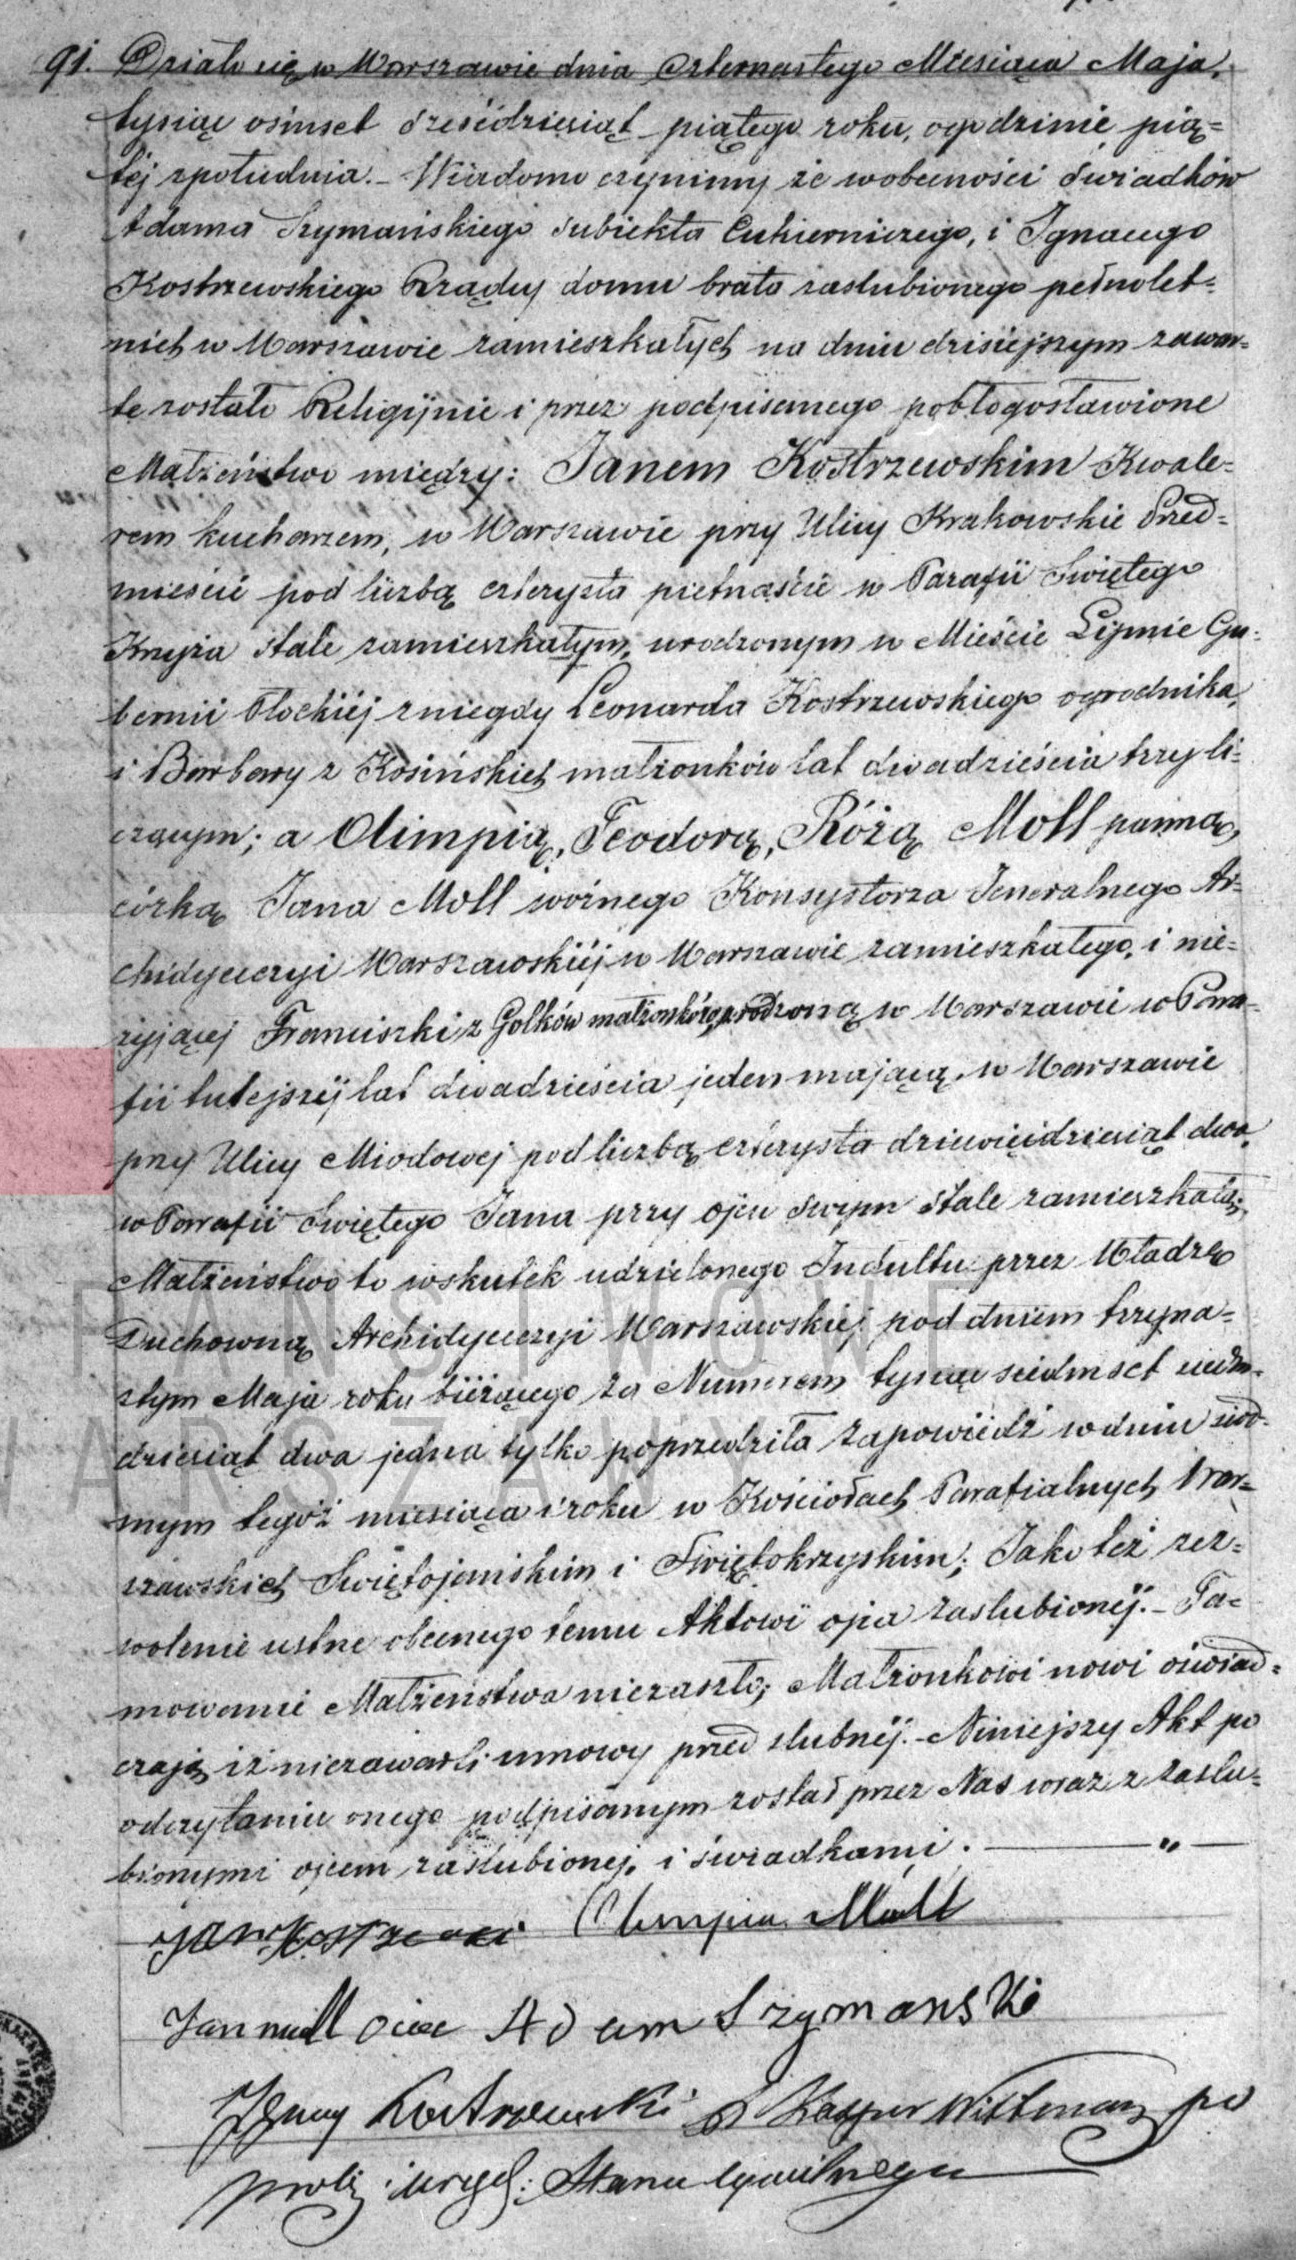 91. Działo się w Warszawie dnia czternastego Miesiąca Maja,
tysiąc ośmset sześćdziesiąt piątego roku, ogodzinie pią=
téj zpołudnia. – Wiadomo czynimy że wobecności świadków
Adama Szymańskiego subiekta Cukierniczego, i Ignacego
Kostrzewskiego Rządcy domu brata zaslubionego pełnolet=
nich w Warszawie zamieszkałych na dniu dzisiejszym zawar=
te zostało Religijnie i przez podpisanego pobłogosławione
Małżeństwo między: Janem Kostrzewskim Kwale=
rem kucharzem, w Warszawie przy Ulicy Krakowskie Przed=
mieście pod liczbą czterysta piętnaście w Parafii Świętego
Krzyża stale zamieszkałym, urodzonym w Mieście Lipnie Gu=
bernii Płockiéj z niegdy Leonarda Kostrzewskiego ogrodnika,
i Barbary z Kosińskich małżonków lat dwadzieścia trzy li=
czącym; a Olimpią, Teodorą, Różą Moll panną,
córką Jana Moll woźnego Konsystorza Jeneralnego Ar=
chidyecezyi Warszawskiéj w Warszawie zamieszkałego, i nie=
żyjącej Franciszki z Golków małżonków, urodzoną w Warszawie w Para=
fii tutejszéj lat dwadzieścia jeden mającą, w Warszawie
przy Ulicy Miodowej pod liczbą czterysta dziewięćdziesiąt dwa
w Parafii Świętego Jana przy ojcu swym stale zamieszkałą.
Małżeństwo to wskutek udzielonego Indultu przez Władzę
Duchowną Archidyecezyi Warszawskiéj pod dniem trzyna=
stym Maja roku bieżącego za Numerem tysiąc siedmset siedm=
dziesiąt dwa jedna tylko poprzedziła zapowiedź w dniu siód=
mym tegoż miesiąca i roku w Kościołach Parafialnych War=
szawskich Świętojańskim i Świętokrzyskim; Jako też zez=
wolenie ustne obecnego temu Aktowi ojca zaslubionéj. – Ta=
mowanie Małżeństwa niezaszło; Małżonkowi nowi oświad=
czają iż niezawarli umowy przed slubnéj. – Niniejszy Akt po
odczytaniu onego podpisanym został przez Nas wraz z zaslu=
bionymi ojcem zaslubionej, i świadkami. — „ —
Jan Olimpia Moll
Jan moll Adam Szymanski
Ignacy Kostrzewski X Kasper Wittman po
Stanu Cywilnego
PAŃSTWOWE
WARSZAWY